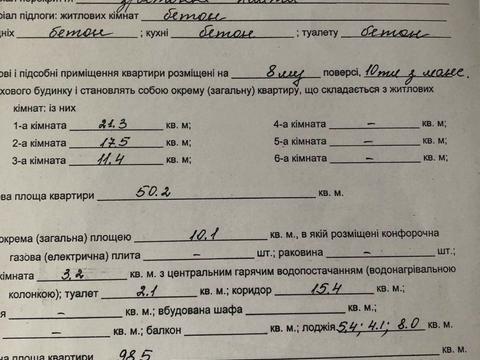 ріал підлоги: житлових кімнат бетон
дніх бетон ; кухні бетон ; туалету бетон
ові і підсобні приміщення квартири розміщені на 8му поверсі, 10ти з манс.
хового будинку і становлять собою окрему (загальну) квартиру, що складається з житлових
кімнат: із них
1-а кімната 21.3 кв. м; 4-а кімната – кв. м;
2-а кімната 17.5 кв. м; 5-а кімната – кв. м;
3-а кімната 11.4 кв. м; 6-а кімната – кв. м;
ва площа квартири 50.2 кв. м.
окрема (загальна) площею 10.1 кв. м., в якій розміщені конфорочна
газова (електрична) плита – шт.; раковина – шт.;
кімната 3,2 кв. м. з центральним гарячим водопостачанням (водонагрівальною
колонкою); туалет 2.1 кв. м.; коридор 15.4 кв. м.;
я – кв. м.; вбудована шафа – кв. м.;
– кв. м.; балкон – кв. м.; лоджія 5.4; 4.1; 8.0 кв. м.
на площа квартири 98.5 кв. м.